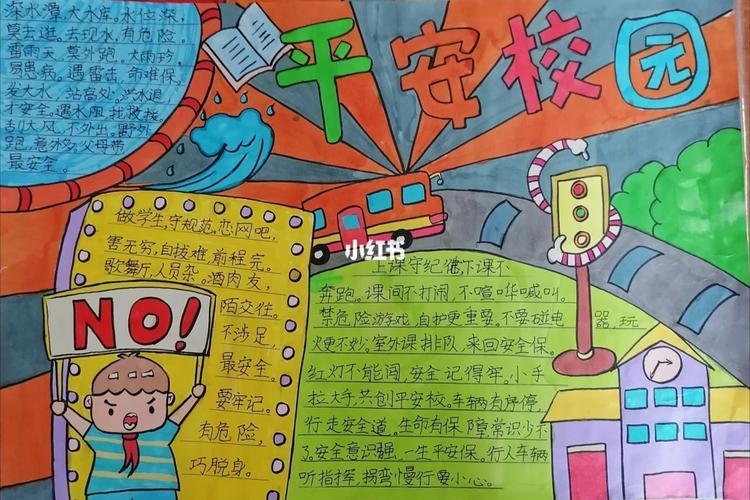 平安校园
深水潭,大水库。水位深,
莫去逛。去现水,有危险。
雷雨天,莫外跑。大雨玲,
易患病。遇雷击,命难保。
发大水,站高处,洪水退
才安全。遇水困,找救援。
刮大风,不外出。野外
跑,意外多,父母带
最安全。
做学生,守规范,恋网吧,
害无穷,自拔难,前程完。
歌舞厅,人员杂。酒肉友,
陌交往。
不涉足,
最安全。
要牢记。
有危险,
巧脱身。
NO!
小红书
上课守纪律,下课不
奔跑。课间不打闹,不喧哗喊叫。
禁危险游戏,自护更重要。不要碰电器,玩
火更不妙。室外课排队,来回安全保。
红灯不能闯,安全记得牢。小手
拉大手,共创平安校。车辆有序停,
行走安全道。生命有保障,常识少不
了。安全意识强,一生平安保。行人车辆
听指挥,拐弯慢行要小心。